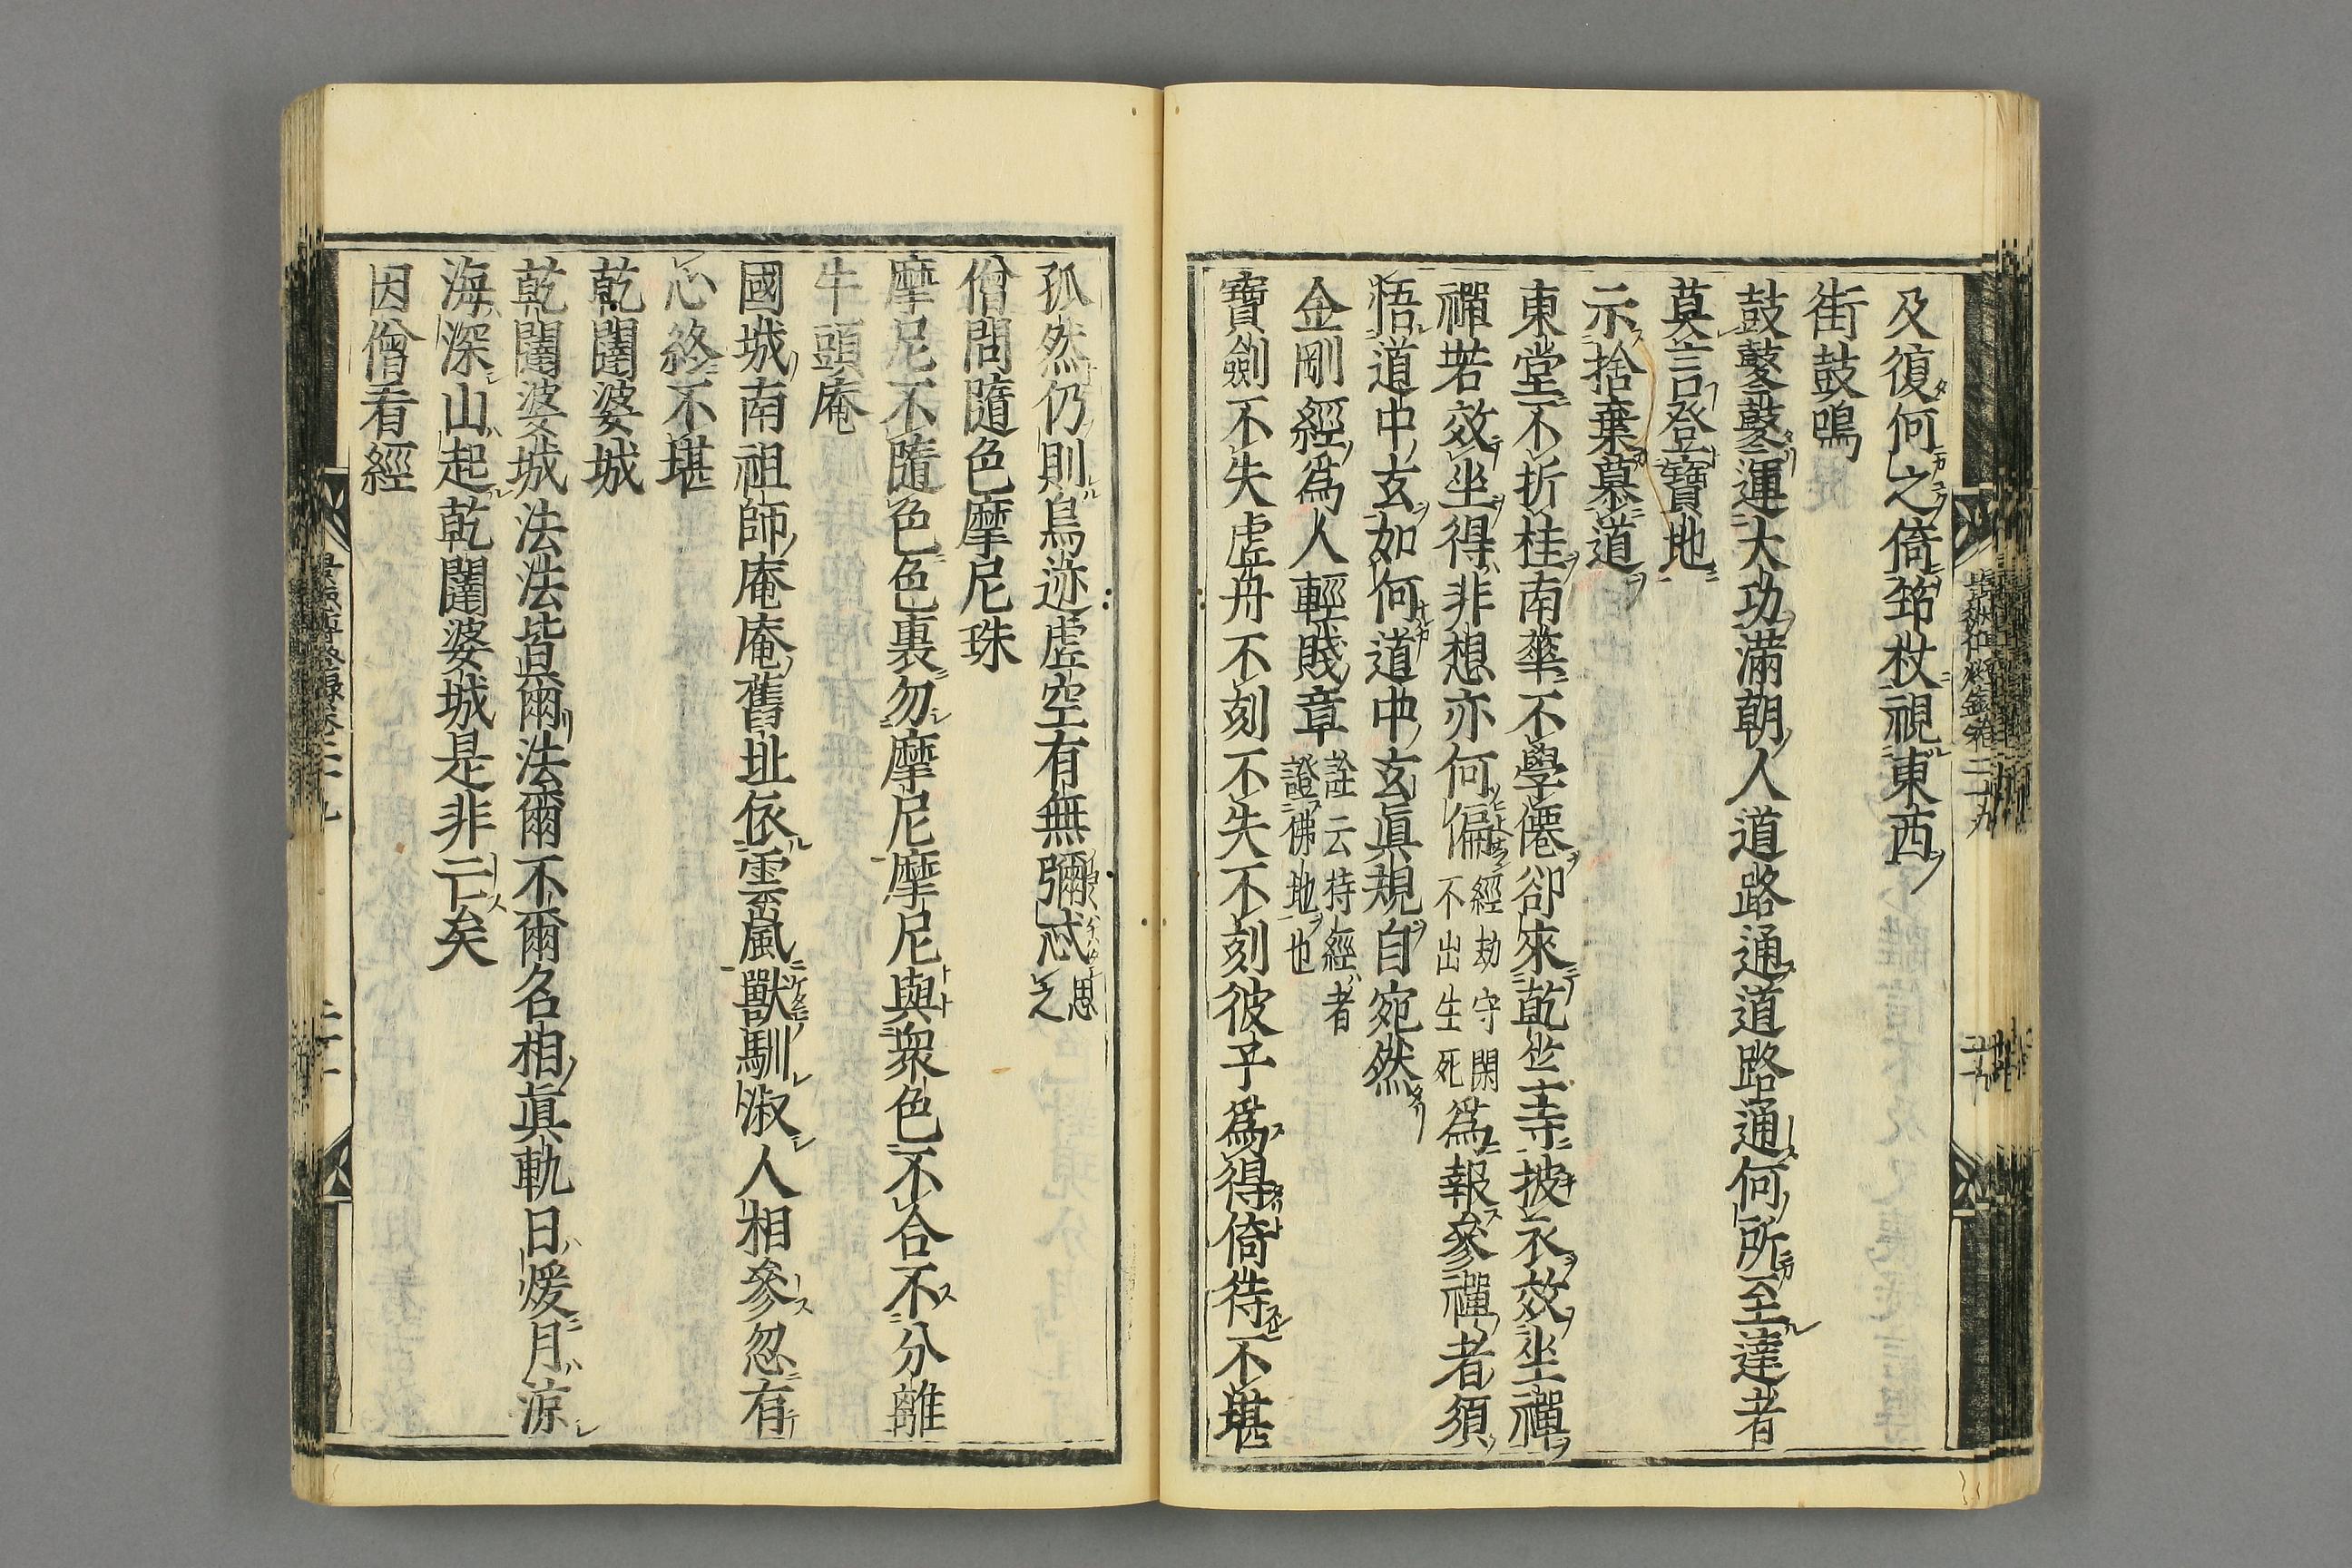 及復何之倚筇杖視東西
街鼓鳴
鼓鼕鼕運大功滿朝人道路通道路通何所至達者
莫言登寶地
示捨棄慕道
東堂不折桂南華不學僊卻來乾竺寺披衣效坐禪
禪若效坐得非想亦何偏經劫守閑不出生死為報參禪者須
悟道中玄如何道中玄眞規自宛然
金剛經為人輕賤章註云持經者證佛地也
寶劍不失虛舟不刻不失不刻彼子為得倚待不堪
孤然仍則鳥迹虛空有無彌忒思之
僧問隨色摩尼珠
摩尼不隨色色裏勿摩尼摩尼與衆色不合不分離
牛頭庵
國城南祖師庵庵舊址依雲嵐獸馴淑人相參忽有
心終不堪
乾闥婆城
乾闥婆城法法皆爾法爾不爾名相眞軌日煖月涼
海深山起乾闥婆城是非亡矣
因僧看經